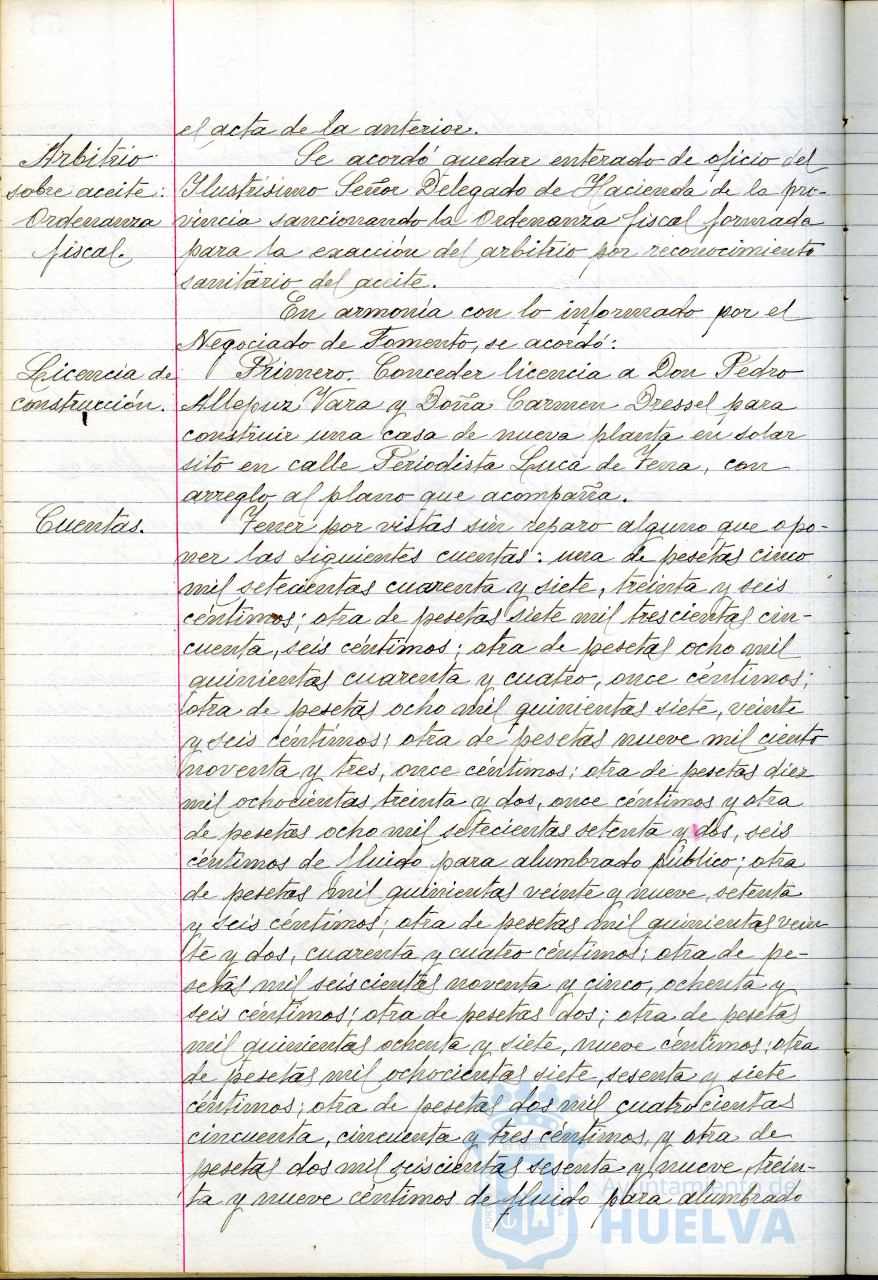 el acta de la anterior.
Arbitrio
sobre aceite:
Ordenanza
fiscal.
Se acordó quedar enterado de oficio del
Ilustrísimo Señor Delegado de Hacienda de la pro-
vincia sancionando la Ordenanza fiscal formada
para la exacción del arbitrio por reconocimiento
sanitario del aceite.
En armonía con lo informado por el
Negociado de Fomento, se acordó:
Licencia de
construcción.
Primero. Conceder licencia a Don Pedro
Altepuz Vara y Doña Carmen Dressel para
construir una casa de nueva planta en solar
sito en calle Periodista Luca de Tena, con
arreglo al plano que acompaña.
Cuentas.
Tener por vistas sin reparo alguno que opo-
ner las siguientes cuentas: una de pesetas cinco
mil setecientas cuarenta y siete, treinta y seis
céntimos; otra de pesetas siete mil trescientas cin-
cuenta, seis céntimos; otra de pesetas ocho mil
quinientas cuarenta y cuatro, once céntimos;
otra de pesetas ocho mil quinientas siete, veinte
y seis céntimos; otra de pesetas nueve mil ciento
noventa y tres, once céntimos; otra de pesetas diez
mil ochocientas treinta y dos, once céntimos y otra
de pesetas ocho mil setecientas setenta y dos, seis
céntimos de fluido para alumbrado público; otra
de pesetas mil quinientas veinte y nueve, setenta
y seis céntimos; otra de pesetas mil quinientas vein
te y dos, cuarenta y cuatro céntimos; otra de pe-
setas mil seiscientas noventa y cinco, ochenta y
seis céntimos; otra de pesetas dos; otra de pesetas
mil quinientas ochenta y siete, nueve céntimos; otra
de pesetas mil ochocientas siete, sesenta y siete
céntimos; otra de pesetas dos mil cuatrocientas
cincuenta, cincuenta y tres céntimos, y otra de
pesetas dos mil seiscientas sesenta y nueve, trein-
ta y nueve céntimos de fluido para alumbrado
Ayuntamiento de
HUELVA